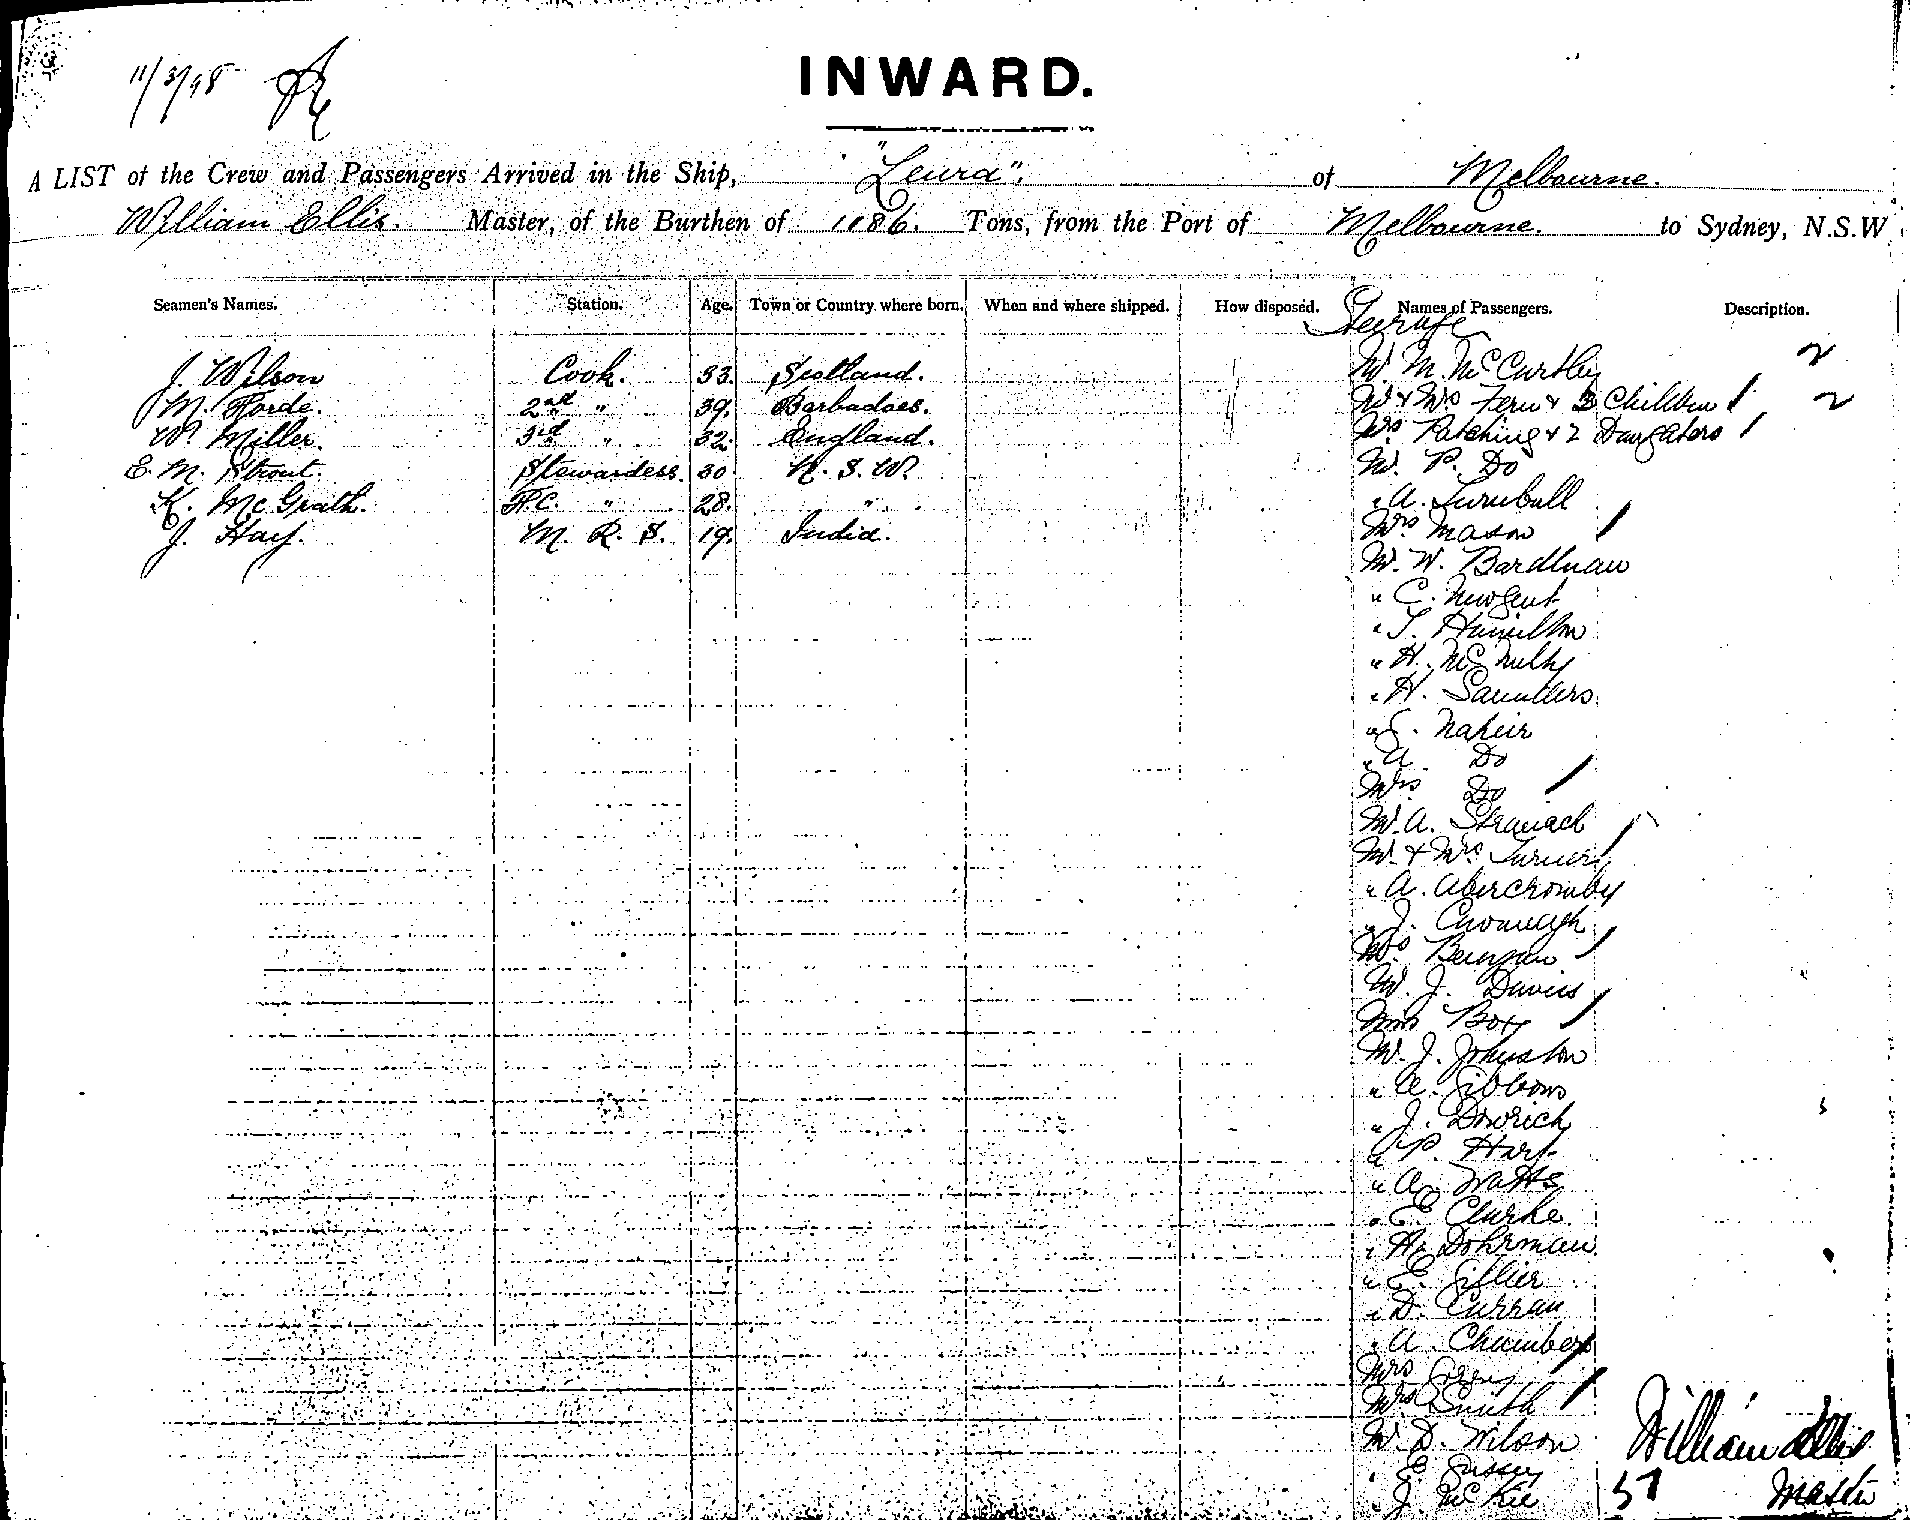 11/3/98
INWARD.
A LIST of the Crew and Passengers Arrived in the Ship, "Leura". of Melbourne.
William Ellis. Master, of the Burthen of 1186. Tons, from the Port of Melbourne. to Sydney, N.S.W
Seamen's Names. Station. Age. Town or Country where born. When and where shipped. How disposed. Names of Passengers. Description.
Steerage
J. Wilson Cook. 33. Scotland. Mr M. McCarthy 2
M. Forde. 2nd " 39. Barbadoes. Mr & Mrs Fern & 3 Children / 2
W. Miller. 3rd " 32. England. Mrs Patching & 2 Daughters /
E. M. Strout. Stewardess. 30. N. S. W. Mr. P. Do
K. McGrath. F.C. " 28. " " A. Turnbull
J. Hay. M. R. S. 19. India. Mrs Mason /
Mr. W. Bardman
" C. Newgent
" T. Hamilton
" H. McNulty
" H. Saunders
" Napier
" A. Do
Mrs Do /
Mr. A.
Mr. & Mrs Turner /
" A. Abercromby
" J. Cavanagh
Mrs Benyon /
Mr. J. Davies
Miss Box /
Mr. J. Johnston
" A. Gibbons
" J. Dowrich
" P. Hart
" A. Watts
" E. Clarke
" H. Dohrman
" E. Gillier
" D. Curran
" A. Chambers
Mrs /
Mrs Smith / William Ellis
Mr. D. Wilson
" E.
" J. McKie 57 Master